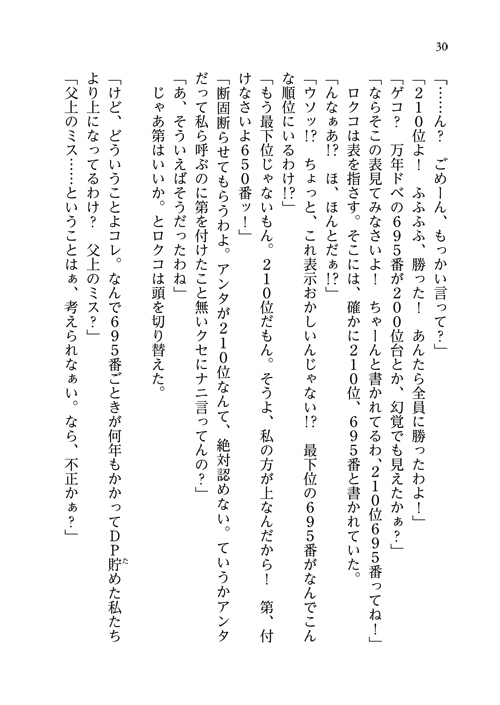 30
「……ん？　ごめーん、もっかい言って？」
「２１０位よ！　ふふふふ、勝った！　あんたら全員に勝ったわよ！」
「ゲコ？　万年ドベの６９５番が２００位台とか、幻覚でも見えたかぁ？」
「ならそこの表見てみなさいよ！　ちゃーんと書かれてるわ、２１０位６９５番ってね！」
　ロクコは表を指さす。そこには、確かに２１０位、６９５番と書かれていた。
「んなぁあ!?　ほ、ほんとだぁ!?」
「ウソッ!?　ちょっと、これ表示おかしいんじゃない!?　最下位の６９５番がなんでこん
な順位にいるわけ!?」
「もう最下位じゃないもん。２１０位だもん。そうよ、私の方が上なんだから！　第、付
けなさいよ６５０番ッ！」
「断固断らせてもらうわよ。アンタが２１０位なんて、絶対認めない。ていうかアンタ
だって私ら呼ぶのに第を付けたこと無いクセにナニ言ってんの？」
「あ、そういえばそうだったわね」
　じゃあ第はいいか。とロクコは頭を切り替えた。
「けど、どういうことよコレ。なんで６９５番ごときが何年もかかってＤＰ貯めた私たち
より上になってるわけ？　父上のミス？」
「父上のミス……ということはぁ、考えられなぁい。なら、不正かぁ？」